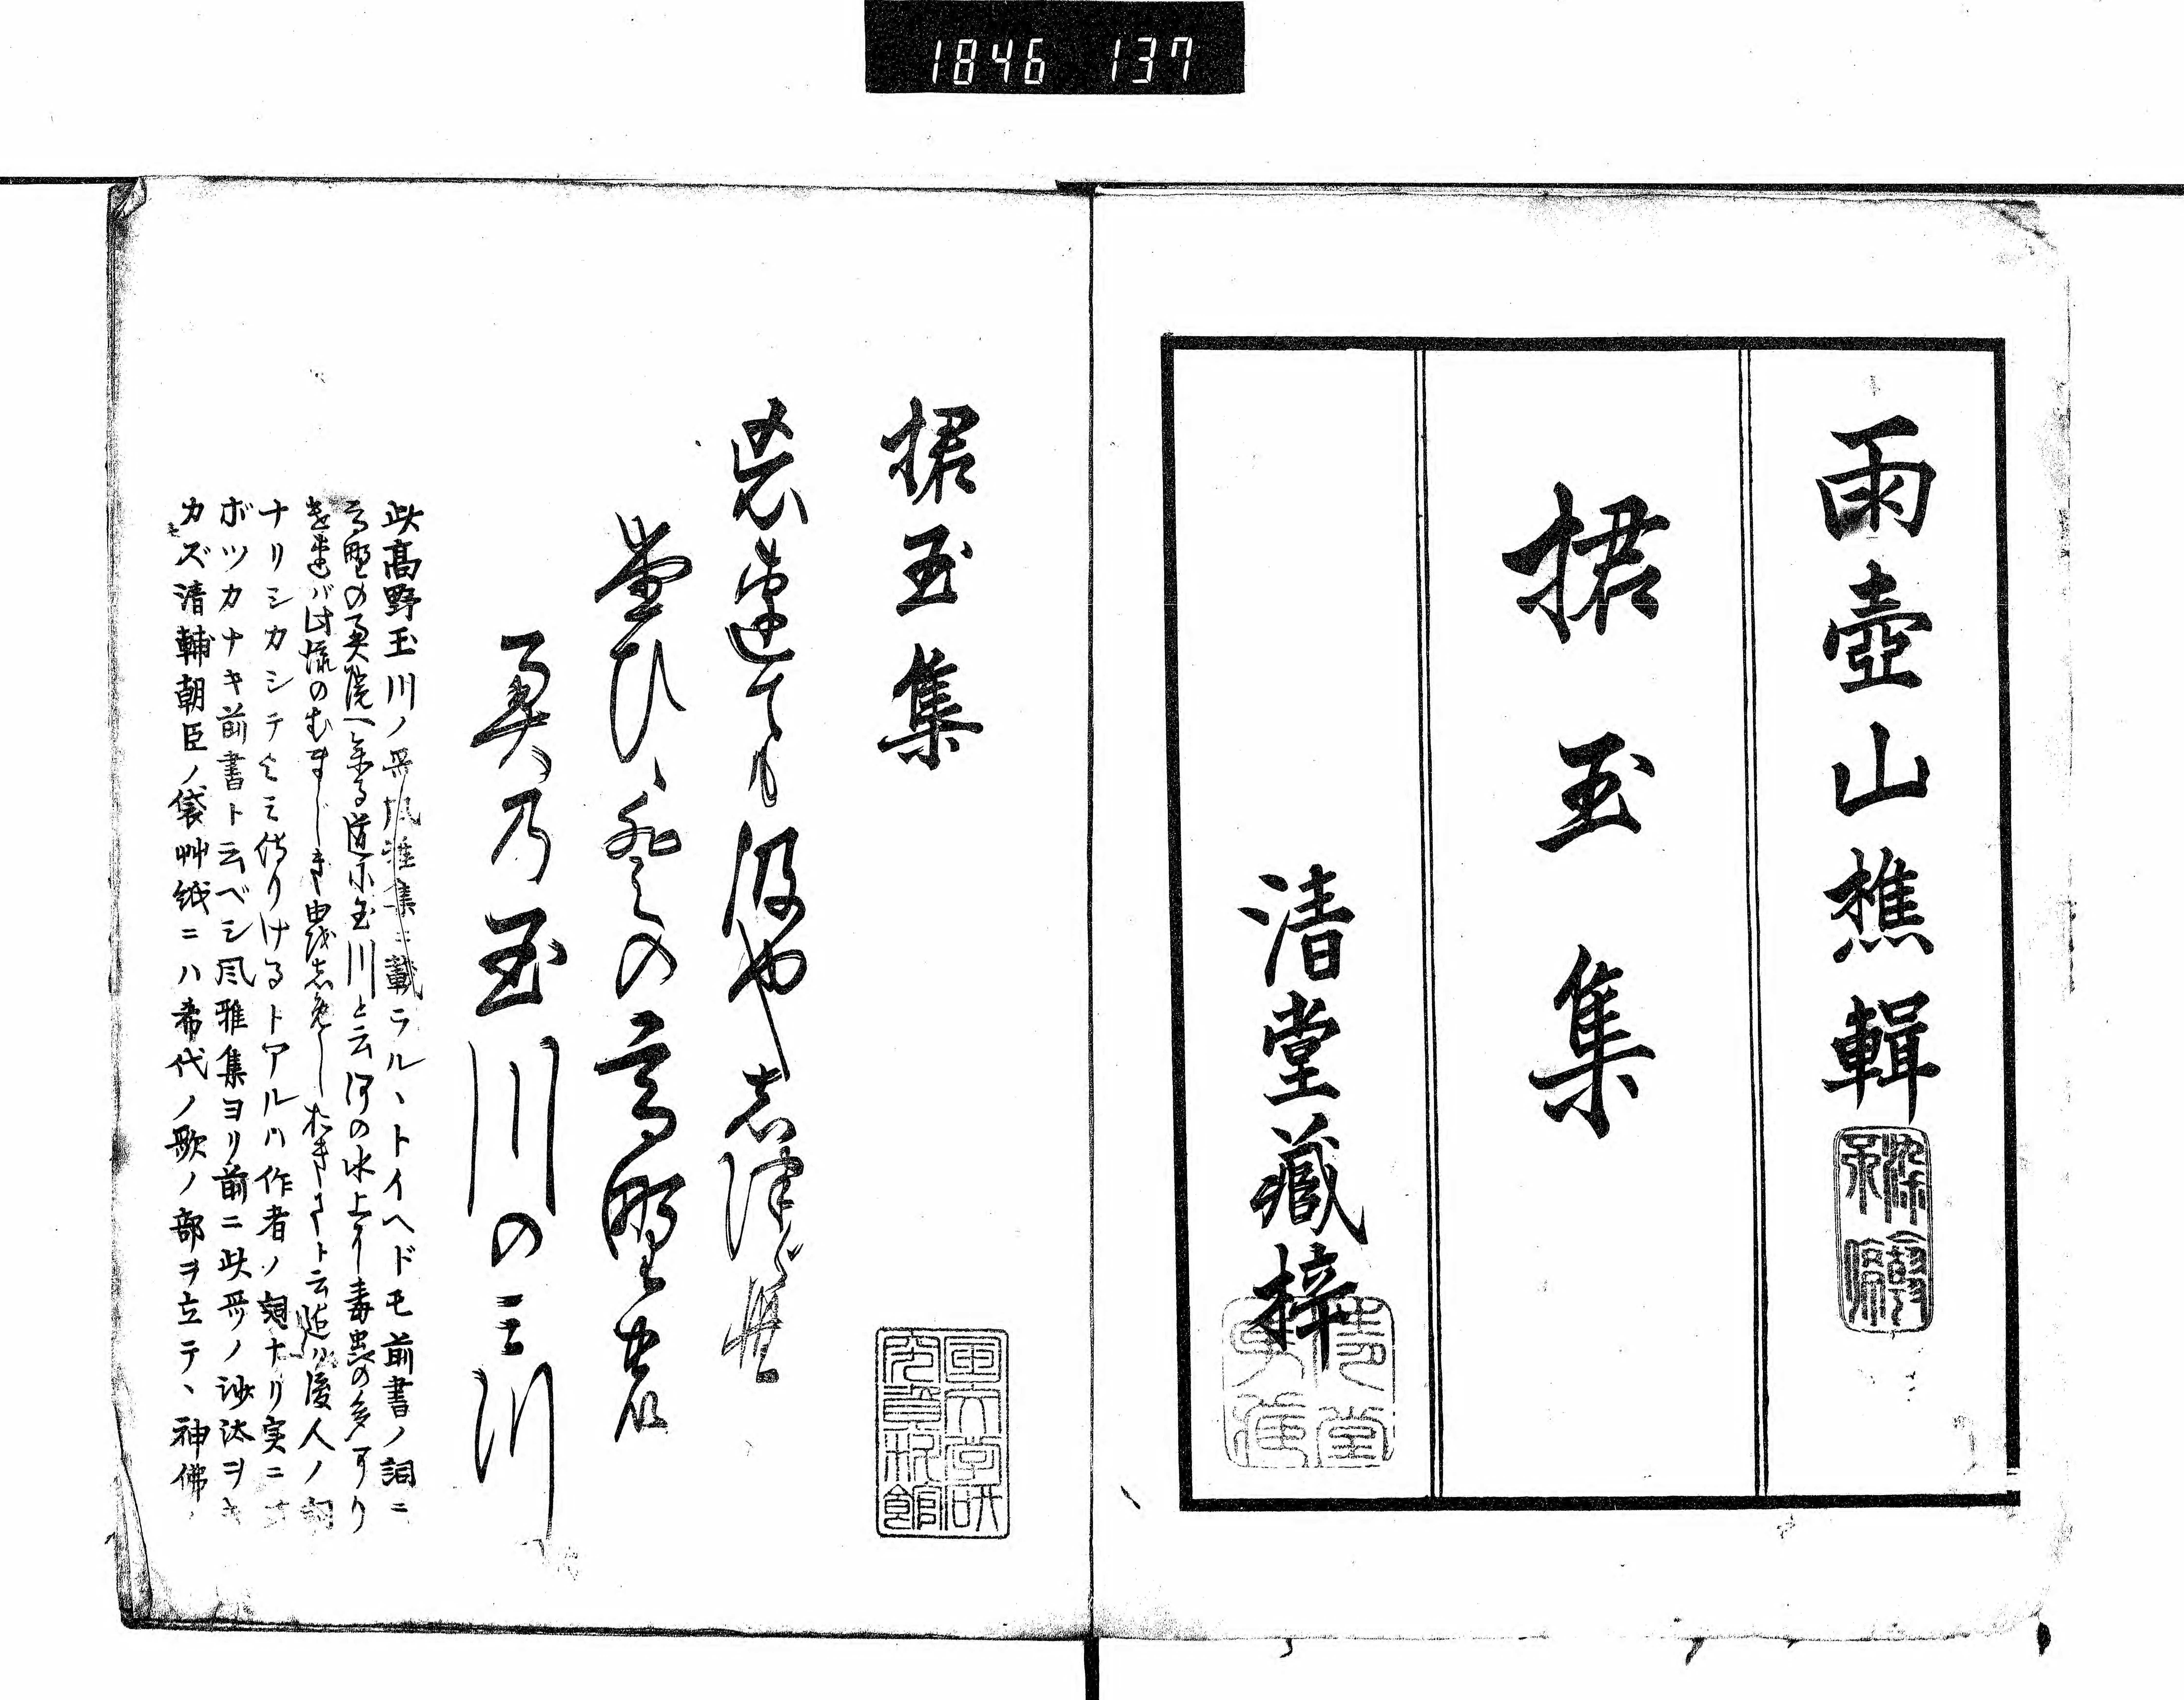 1846 137
雨壺山樵輯
捃玉集
清堂藏梓
捃玉集
忘連ても汲やし津らむ
堂ひゝ登の高野农
奥乃玉川の三川
此高野玉川ノ哥風雅集ニ載ラルヽトイヘドモ前書ノ詞ニ
高野の奥院へ参る道に玉川と云河の水上に毒虫の多かり
ければ此流のむまじき由を志めしおきてト云迄ハ後人ノ詞
ナリシカシテよミ侍りけるトアルハ作者ノ詞ナリ実ニオ
ボツカナキ前書ト云ベシ風雅集ヨリ前ニ此哥ノ沙汰ヲキ
カズ清輔朝臣ノ袋艸紙ニハ希代ノ歌ノ部ヲ立テヽ神佛ノ
国文学研
究資料館